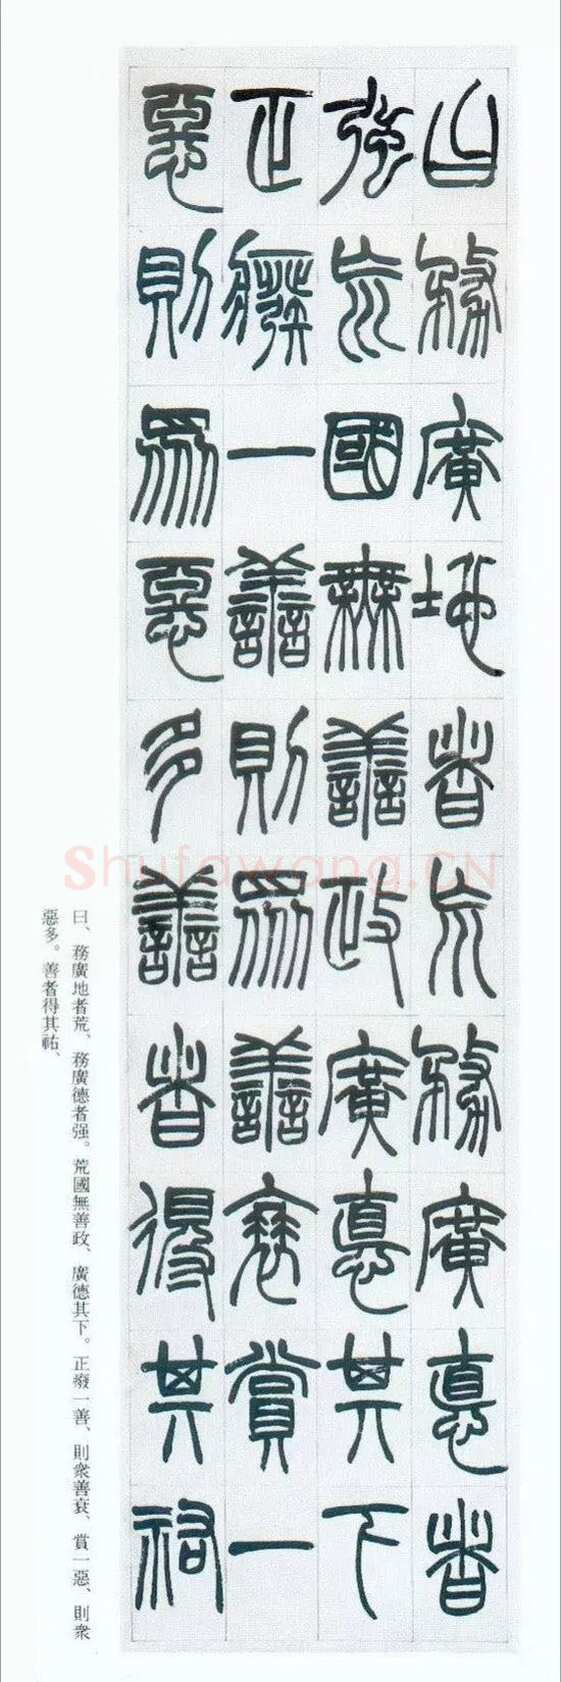 曰務廣地者荒務廣德者
强荒國無善政廣德其下
正癈一善則衆善衰賞一
惡則衆惡多善者得其祐
曰、務廣地者荒、務廣德者强。荒國無善政、廣德其下。正癈一善、則衆善衰、賞一惡、則衆
惡多。善者得其祐、
Shufawang.CN